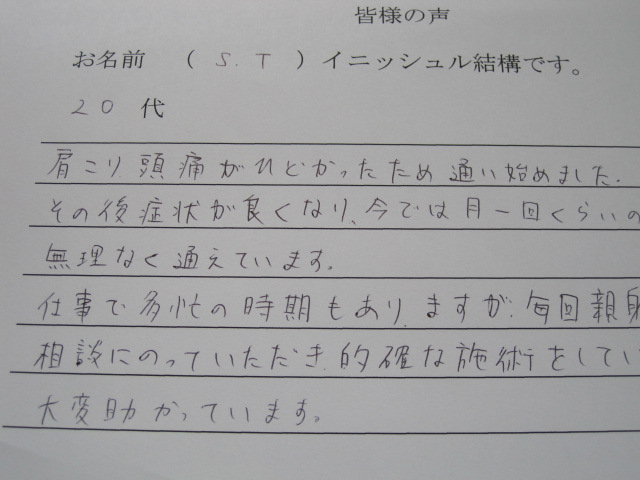 皆様の声
お名前 ( S.T ) イニッシュル結構です。
20 代
肩こり頭痛がひどかったため通い始めました.
その後症状が良くなり、今では月一回くらいの
無理なく通えています.
仕事で多忙の時期もありますが、毎回親身
相談にのっていただき、的確な施術をしてい
大変助かっています。